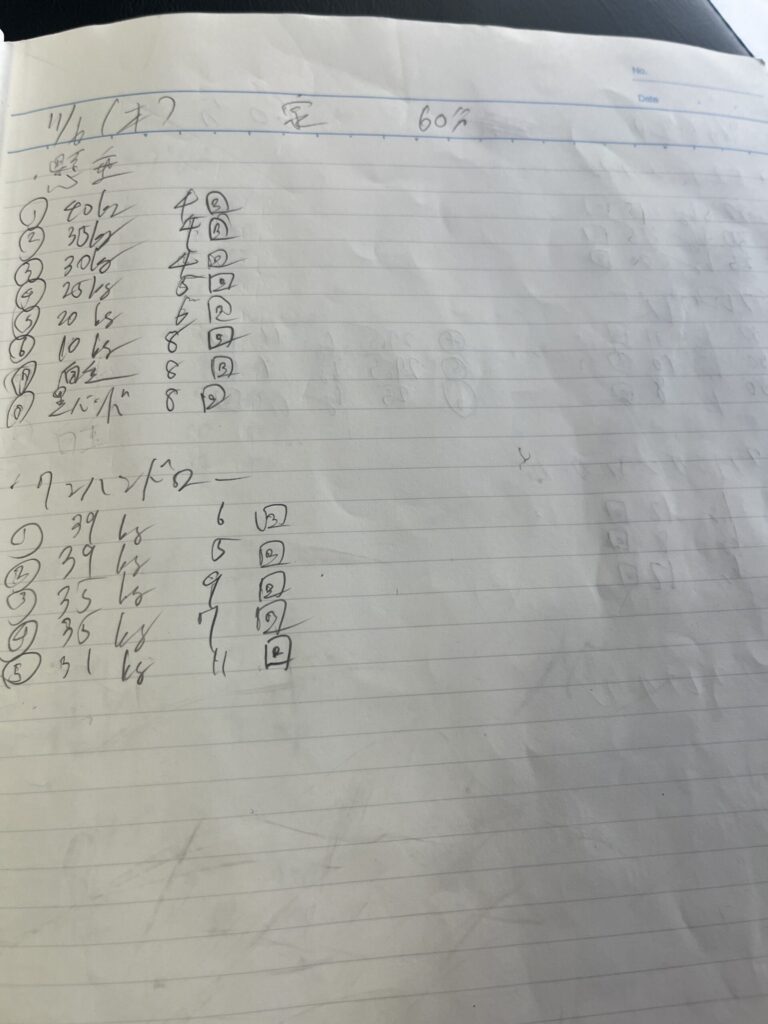 No.
Date
11/6 (木) 宅 60分
・懸垂
① 40kg 4 3
② 35kg 4 3
③ 30kg 4 2
④ 25kg 5 2
⑤ 20kg 6 2
⑥ 10kg 8 2
⑦ 自重 8 3
⑧ 黒バンド 8 2
・ワンハンドロー
① 39kg 6 3
② 39kg 5 2
③ 35kg 9 2
④ 35kg 7 2
⑤ 31kg 11 2